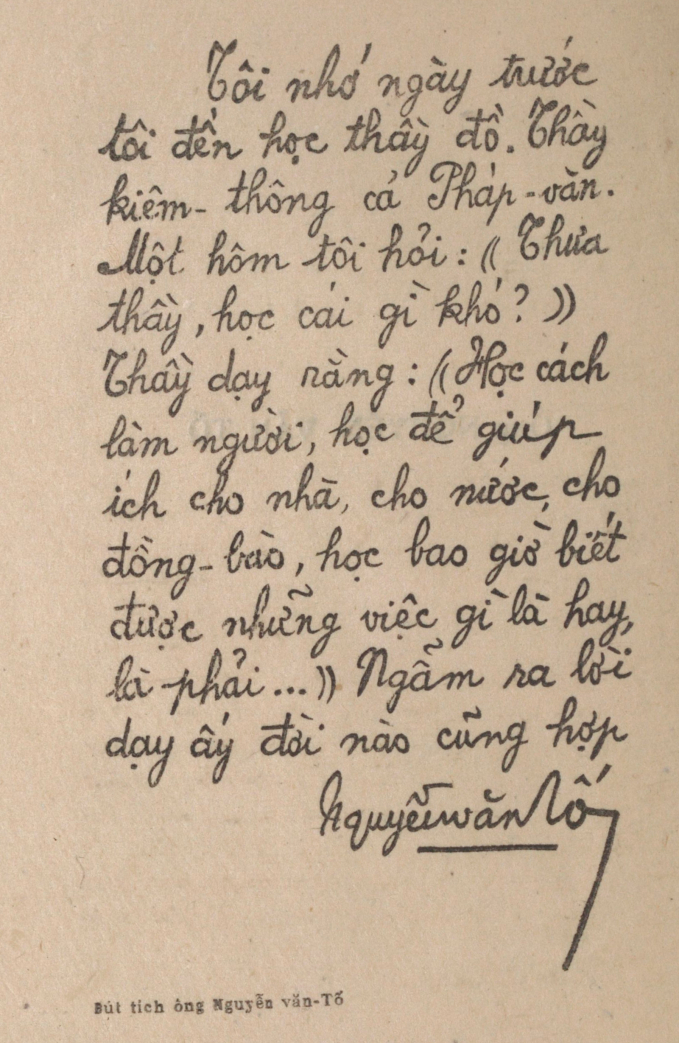 Tôi nhớ ngày trước
tôi đến học thầy đồ. Thầy
kiêm-thông cả Pháp-văn.
Một hôm tôi hỏi : (( Thưa
thầy, học cái gì khó ? ))
Thầy dạy rằng : (( Học cách
làm người, học để giúp
ích cho nhà, cho nước, cho
đồng-bào, học bao giờ biết
được những việc gì là hay,
là phải... )) Ngẫm ra lời
dạy ấy đời nào cũng hợp
Nguyễn văn Tố
Bút tích ông Nguyễn văn-Tố